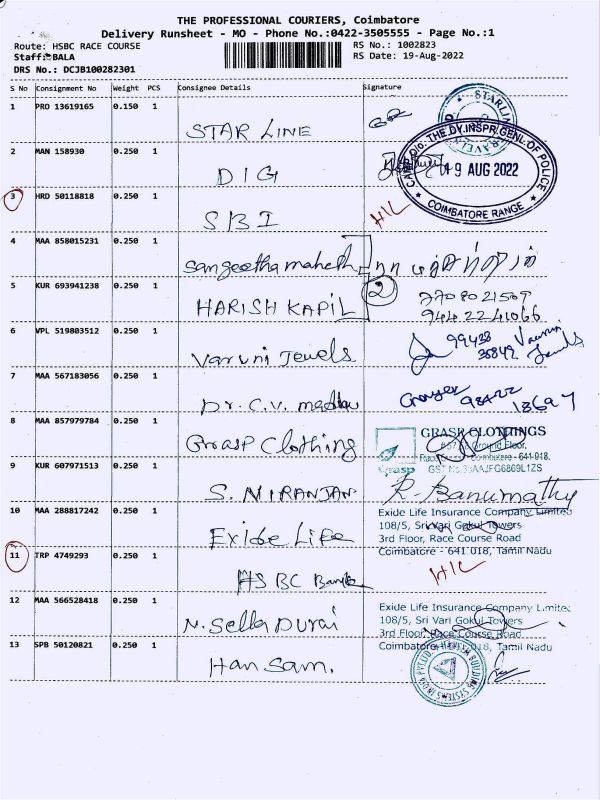 THE PROFESSIONAL COURIERS, Coimbatore
Delivery Runsheet - MO - Phone No.:0422-3505555 - Page No.:1
Route: HSBC RACE COURSE
RS No.: 1002823
Staff: BALA
RS Date: 19-Aug-2022
DRS No.: DCJB100282301
S No Consignment No Weight PCS Consignee Details Signature
1 PRO 13619165 0.150 1 STAR LINE
2 MAN 158930 0.250 1 DIG
CAMP O/o. THE DY.INSPR.GENL.OF POLICE
19 AUG 2022
COIMBATORE RANGE
3 HRD 50118818 0.250 1 SBI H/L
4 MAA 858015231 0.250 1 Sangeetha mahesh
5 KUR 693941238 0.250 1 HARISH KAPIL 2 7708021509
9442241066
6 VPL 519803512 0.250 1 Varuni Jewels 99433
35849 Varuni Jewels
7 MAA 567183056 0.250 1 Dr. C.V. madhu 98422
13697
8 MAA 857979784 0.250 1 Grasp Clothing
GRASP CLOTHINGS
Ground Floor,
Coimbatore - 641-018.
Grasp GST No.33AAJFG6869L1ZS
9 KUR 607971513 0.250 1 S. NIRANJAN R. Banumathy
10 MAA 288817242 0.250 1 Exide Life
Exide Life Insurance Company Limited
108/5, Sri Vari Gokul Towers
3rd Floor, Race Course Road
Coimbatore - 641 018, Tamil Nadu
11 TRP 4749293 0.250 1 HSBC Bank H/L
12 MAA 566528418 0.250 1 N. Sella Durai
Exide Life Insurance Company Limited
108/5, Sri Vari Gokul Towers
3rd Floor, Race Course Road
Coimbatore - 641 018, Tamil Nadu
13 SPB 50120821 0.250 1 Han Sam.